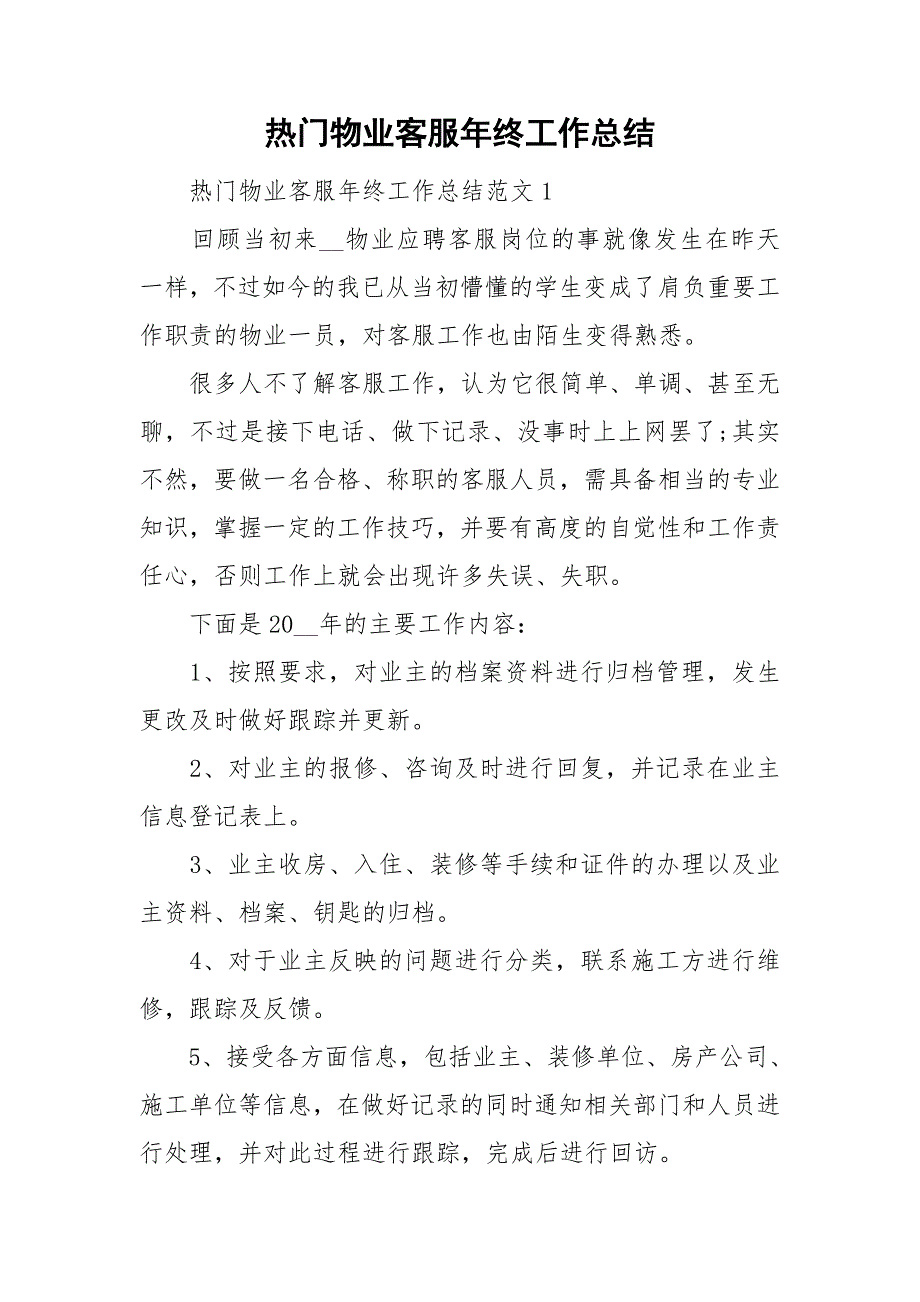 热门物业客服年终工作总结
热门物业客服年终工作总结范文1
回顾当初来__物业应聘客服岗位的事就像发生在昨天
一样，不过如今的我已从当初懵懂的学生变成了肩负重要工
作职责的物业一员，对客服工作也由陌生变得熟悉。
很多人不了解客服工作，认为它很简单、单调、甚至无
聊，不过是接下电话、做下记录、没事时上上网罢了;其实
不然，要做一名合格、称职的客服人员，需具备相当的专业
知识，掌握一定的工作技巧，并要有高度的自觉性和工作责
任心，否则工作上就会出现许多失误、失职。
下面是20__年的主要工作内容：
1、按照要求，对业主的档案资料进行归档管理，发生
更改及时做好跟踪并更新。
2、对业主的报修、咨询及时进行回复，并记录在业主
信息登记表上。
3、业主收房、入住、装修等手续和证件的办理以及业
主资料、档案、钥匙的归档。
4、对于业主反映的问题进行分类，联系施工方进行维
修，跟踪及反馈。
5、接受各方面信息，包括业主、装修单位、房产公司、
施工单位等信息，在做好记录的同时通知相关部门和人员进
行处理，并对此过程进行跟踪，完成后进行回访。